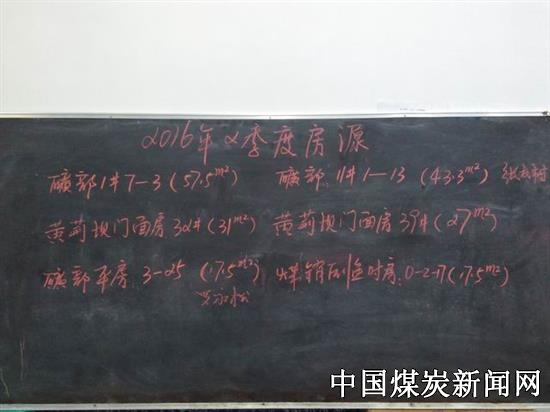 2016年2季度房源
矿部1#7-3(57.5m²) 矿部11#1-13(43.3m²)
黄荊坝门面房32#(31m²) 黄荊坝门面房39#(27m²)
矿部平房3-25(17.5m²) 煤销队临时房:0-2-17(17.5m²)
中国煤炭新闻网